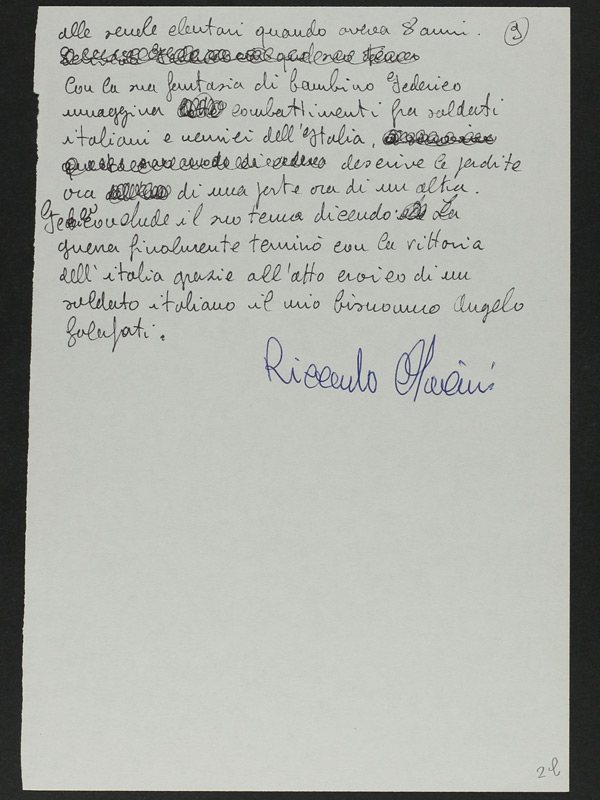 alle scuole elentari quando aveva 8 anni. 9
Con la sua fantasia di bambino Federico
immagina combattimenti fra soldati
italiani e nemici dell'Italia,
descrive le perdite
ora di una parte ora di un altra.
conclude il suo tema dicendo: La
guerra finalmente terminò con la vittoria
dell'italia grazie all'atto eroico di un
soldato italiano il mio bisnonno Angelo
Riccardo